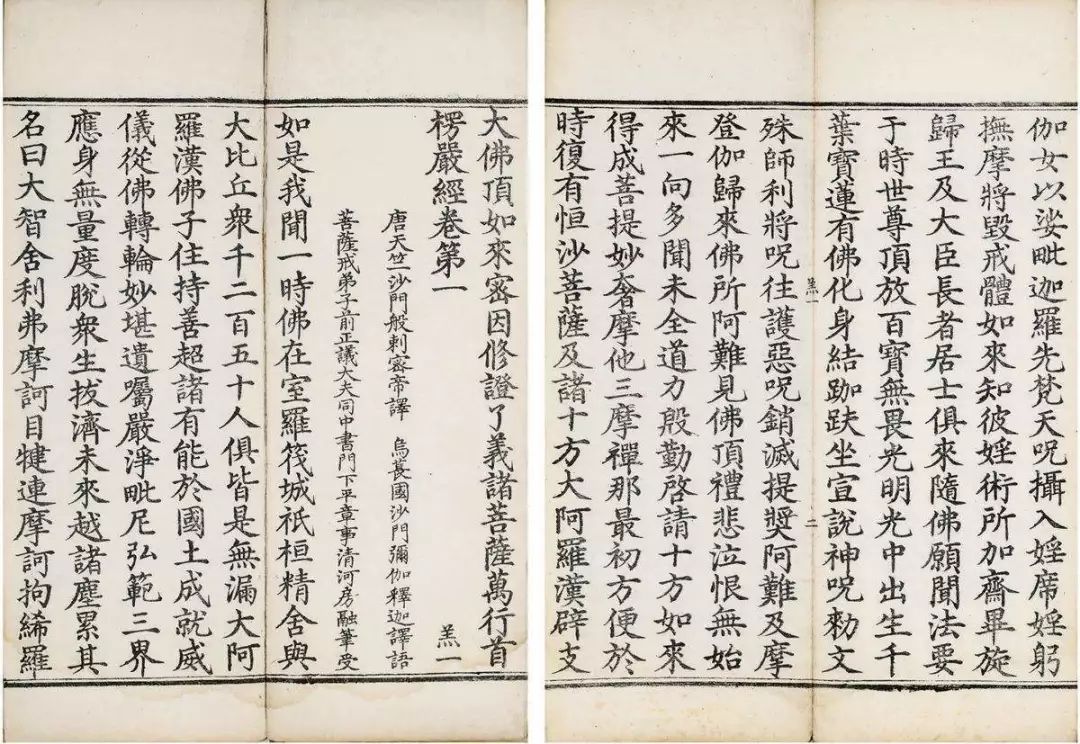 大佛頂如來密因脩證了義諸菩薩萬行首
楞嚴經卷第一 羔一
唐天竺沙門般剌密帝譯 烏萇國沙門彌伽釋迦譯語
菩薩戒弟子前正議大夫同中書門下平章事清河房融筆受
如是我聞一時佛在室羅筏城祇桓精舍與
大比丘衆千二百五十人俱皆是無漏大阿
羅漢佛子住持善超諸有能於國土成就威
儀從佛轉輪妙堪遺囑嚴淨毗尼弘範三界
應身無量度脫衆生拔濟未來越諸塵累其
名曰大智舍利弗摩訶目犍連摩訶拘絺羅
伽女以娑毗迦羅先梵天呪攝入婬席婬躬
撫摩將毀戒體如來知彼婬術所加齋畢旋
歸王及大臣長者居士俱來隨佛願聞法要
于時世尊頂放百寶無畏光明光中出生千
葉寶蓮有佛化身結跏趺坐宣說神呪勑文
羔一 二
殊師利將呪往護惡呪銷滅提獎阿難及摩
登伽歸來佛所阿難見佛頂禮悲泣恨無始
來一向多聞未全道力殷勤啓請十方如來
得成菩提妙奢摩他三摩禪那最初方便於
時復有恒沙菩薩及諸十方大阿羅漢辟支